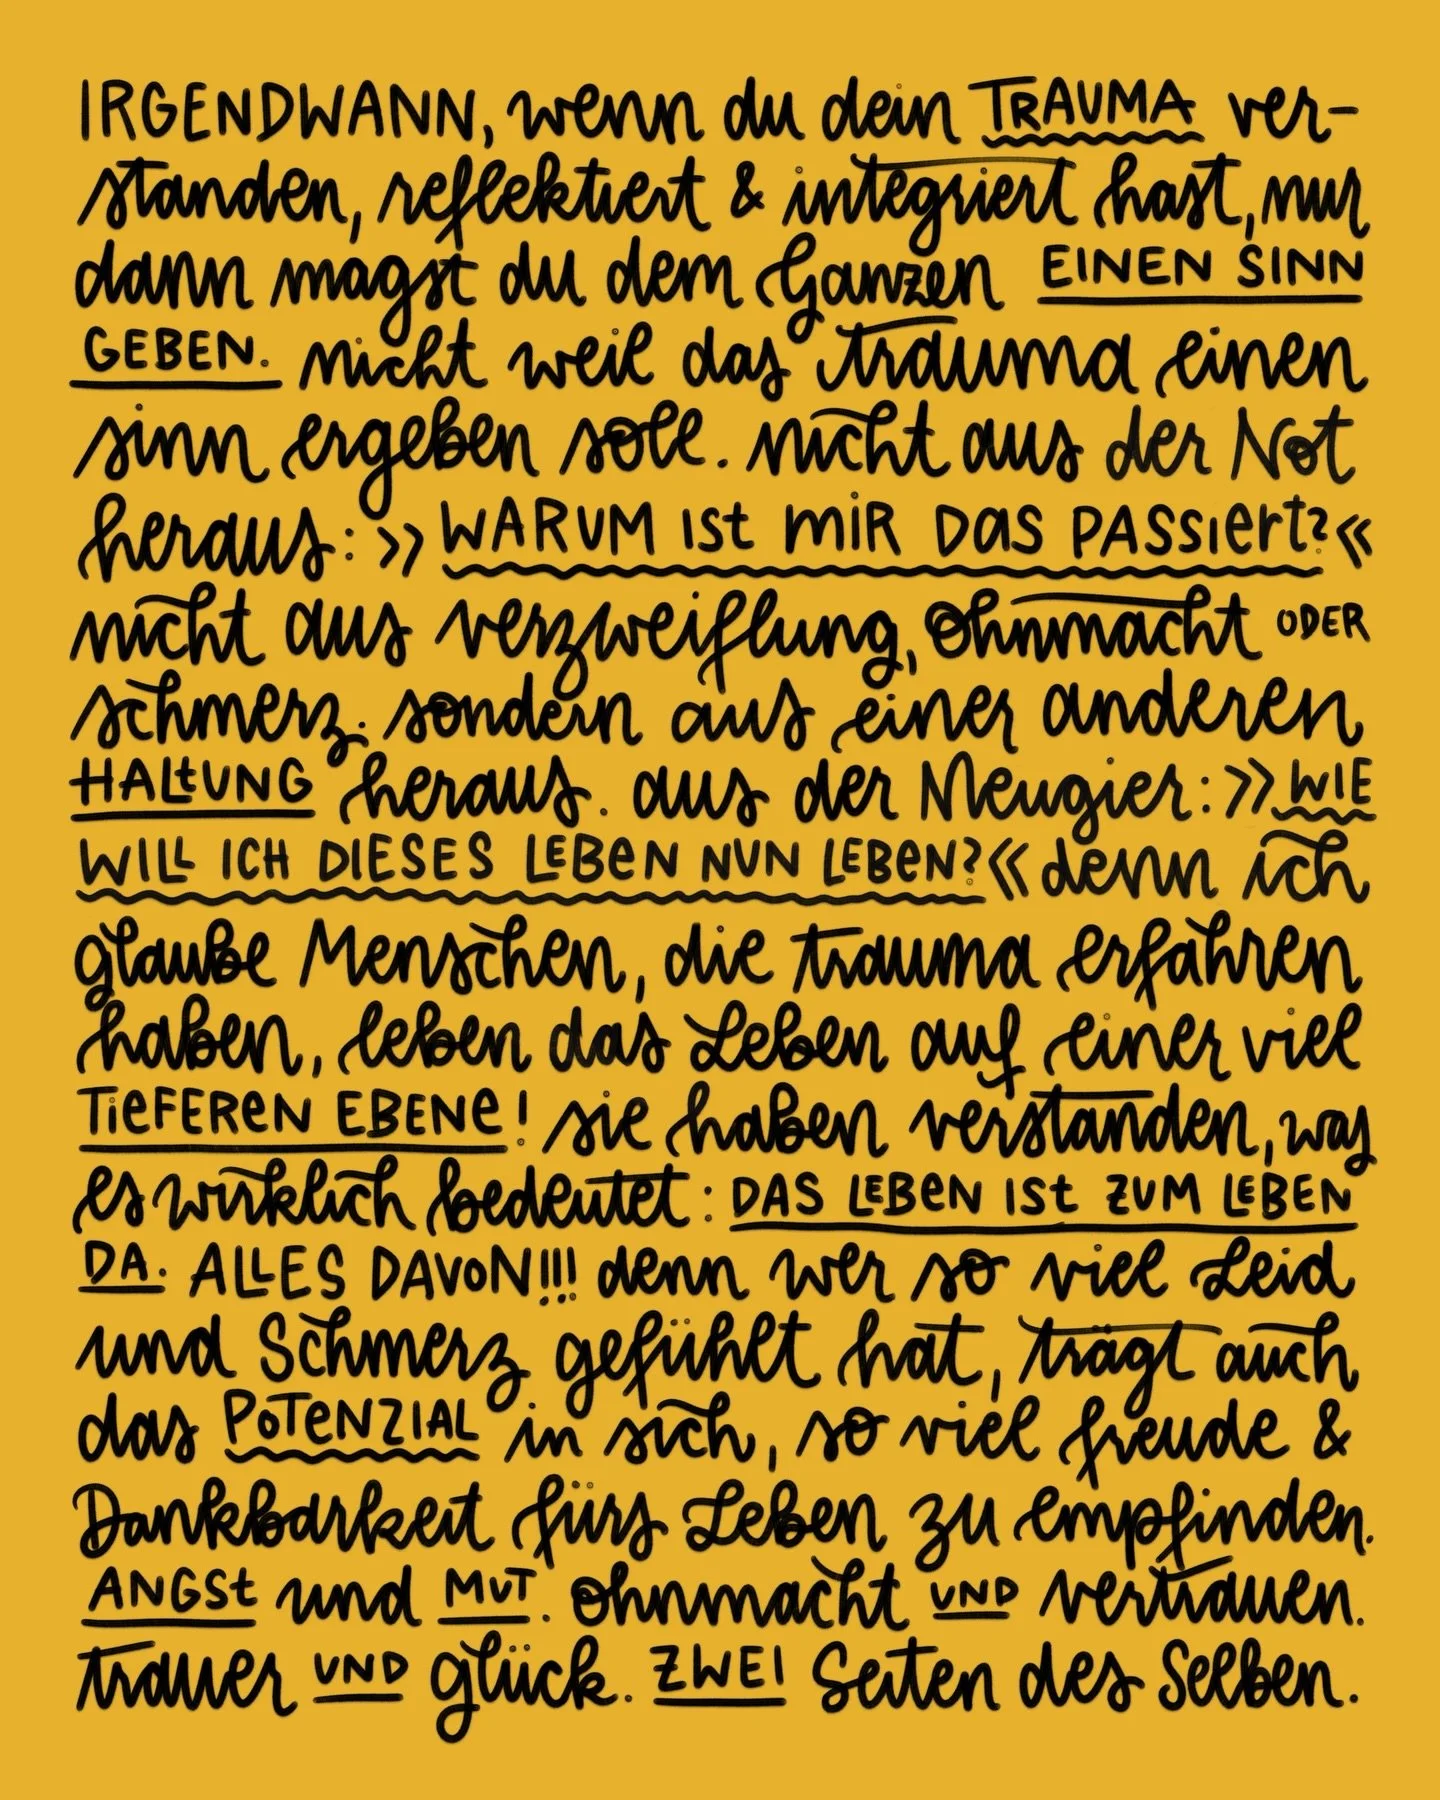 IRGENDWANN, wenn du dein TRAUMA ver-
standen, reflektiert & integriert hast, nur
dann magst du dem Ganzen EINEN SINN
GEBEN. nicht weil das trauma einen
sinn ergeben soll. nicht aus der Not
heraus: »WARUM ist miR DaS PASSiert?«
nicht aus verzweiflung, ohnmacht ODER
schmerz. sondern aus einer anderen
HALtUNG heraus. aus der Neugier: »WIE
WILL ICH DIESES LEBEN NUN LEBEN?« denn ich
glaube Menschen, die trauma erfahren
haben, leben das Leben auf einer viel
TieFEREN EBENE! sie haben verstanden, was
es wirklich bedeutet: DAS LEBEN ISt ZUM LEBEN
DA. ALLES DAVON!!! denn wer so viel Leid
und Schmerz gefühlt hat, trägt auch
das POTENZIAL in sich, so viel freude &
Dankbarkeit fürs Leben zu empfinden.
ANGSt und MUT. ohnmacht UND vertrauen.
trauer UND glück. ZWEI Seiten des Selben.